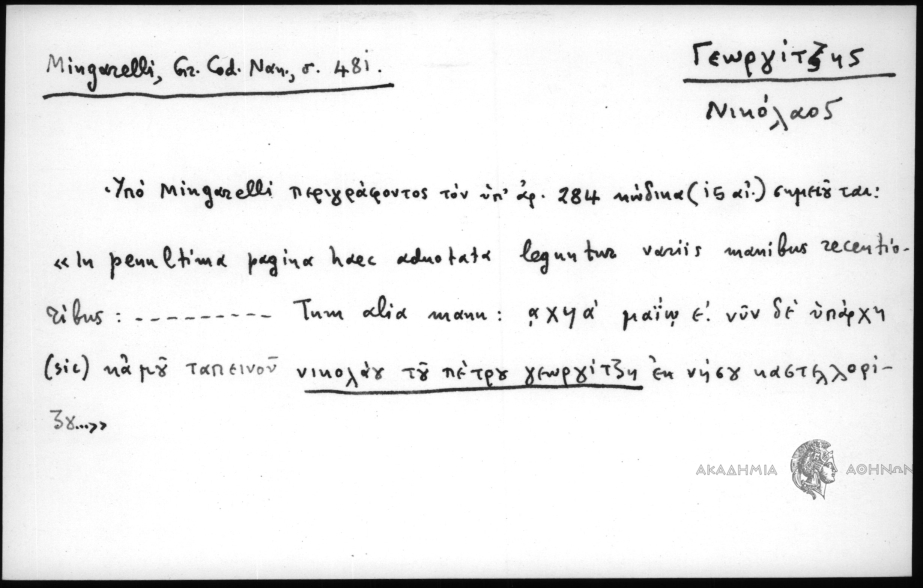 Mingarelli, Gr. Cod. Nan., σ. 481.
Γεωργίτζης
Νικόλαος
Ὑπὸ Mingarelli περιγράφοντος τὸν ὑπ' ἀρ. 284 κώδικα (ιϛ αἰ.) σημειοῦται:
«In penultima pagina haec adnotata leguntur variis manibus recentio-
ribus: --------- Tum alia manu: ͵αχϟα΄ μαΐῳ ε΄. νῦν δὲ ὑπάρχη
(sic) κἀμοῦ ταπεινοῦ νικολάου τοῦ πέτρου γεωργίτζη ἐκ νήσου καστελλορί-
ζου...»
ΑΚΑΔΗΜΙΑ ΑΘΗΝΩΝ